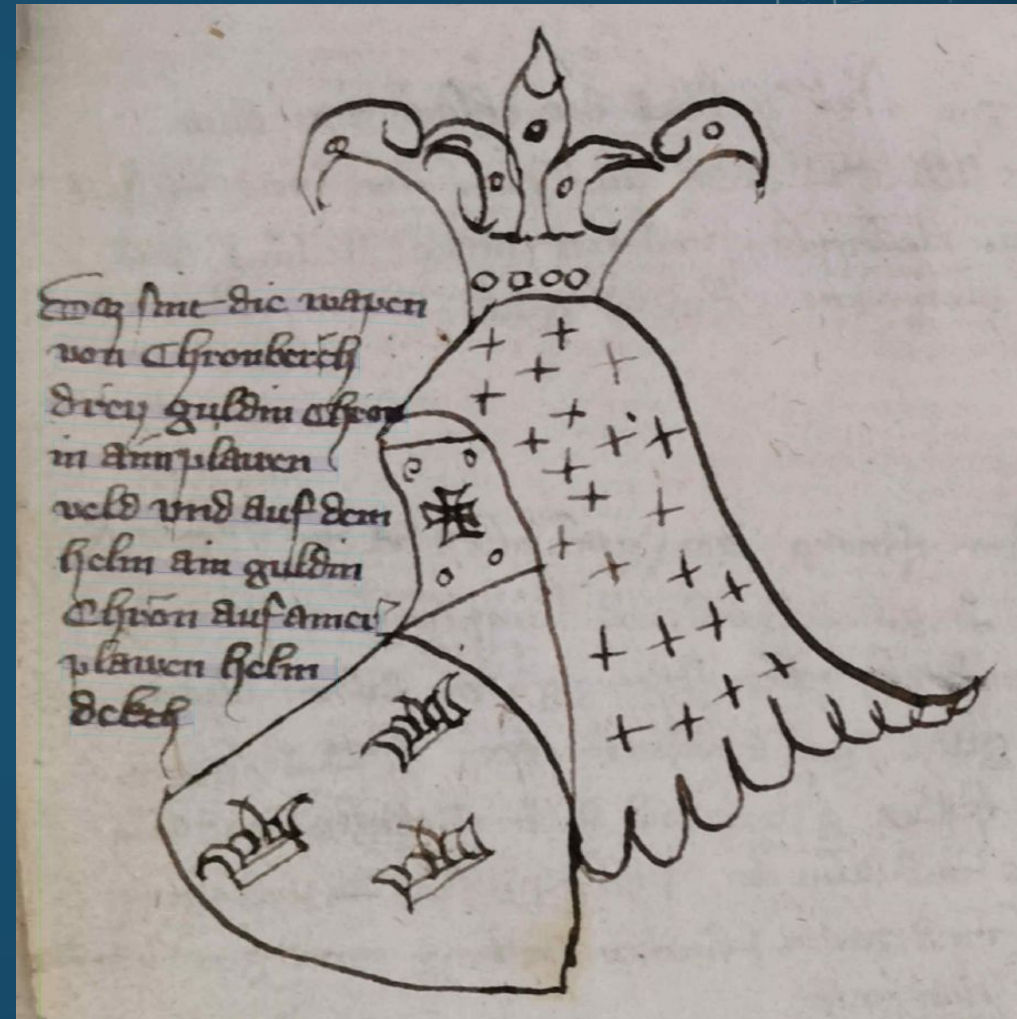 Daz sint die wapen
von Chronberch
drey guldin Chron
in aim plawen
veld vnd auf dem
helm ain guldin
Chron auf ainer
plawen helm
dekch